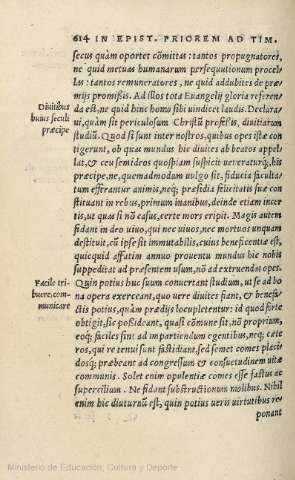 614 IN EPIST. PRIOREM AD TIM.
secus quàm oportet cõmittas: tantos propugnatores,
ne quid metuas humanarum persequutionum procel-
las: tantos remuneratores, ne quid addubites de præ-
mijs promissis. Ad illos tota Euangelij gloria referen-
Diuitibus
huius seculi
præcipe
da est, ne quid hinc homo sibi vindicet laudis. Declara-
ui, quàm sit periculosum Christũ professis, diuitiarum
studiũ. Quod si sunt inter nostros, quibus opes istæ con
tigerunt, ob quas mundus hic diuites ab beatos appel-
lat, & ceu semideos quosdam suspicit veneraturq́;, his
præcipe, ne, quemadmodum uulgo sit, fiducia faculta-
tum efferantur animis, neq; præsidia felicitatis suæ con
stituant in rebus, primum inanibus, deinde etiam incer
tis, ut quas si nõ casus, certe mors eripit. Magis autem
fidant in deo uiuo, qui nec uiuos, nec mortuos unquam
destituit, cũ ipse sit immutabilis, cuius beneficentiæ est,
quicquid affatim annuo prouentu mundus hic nobis
suppeditat ad præsentem usum, nõ ad extruendas opes.
Facile tri-
buere, com-
municare
Quin potius huc suum conuertant studium, ut se ad bo
na opera exerceant, quo vere diuites fiant, & benefa-
ctis potius, quàm prædijs locupletentur: id quod forte
obtigit, sic possideant, quasi cõmune sit, nõ proprium,
eoq; faciles sint ad impartiendum egentibus, neq; cæte
ros, qui re tenui sunt fastidiant, sed semet comes placi-
dosq; præbeant ad congressum & consuetudinem uitæ
communis. Solet enim opulentiæ comes esse fastus ac
supercilium. Ne fidant substructionum molibus. Nihil
enim hic diuturnũ est, quin potius ueris uirtutibus re
ponant
Ministerio de Educación, Cultura y Deporte